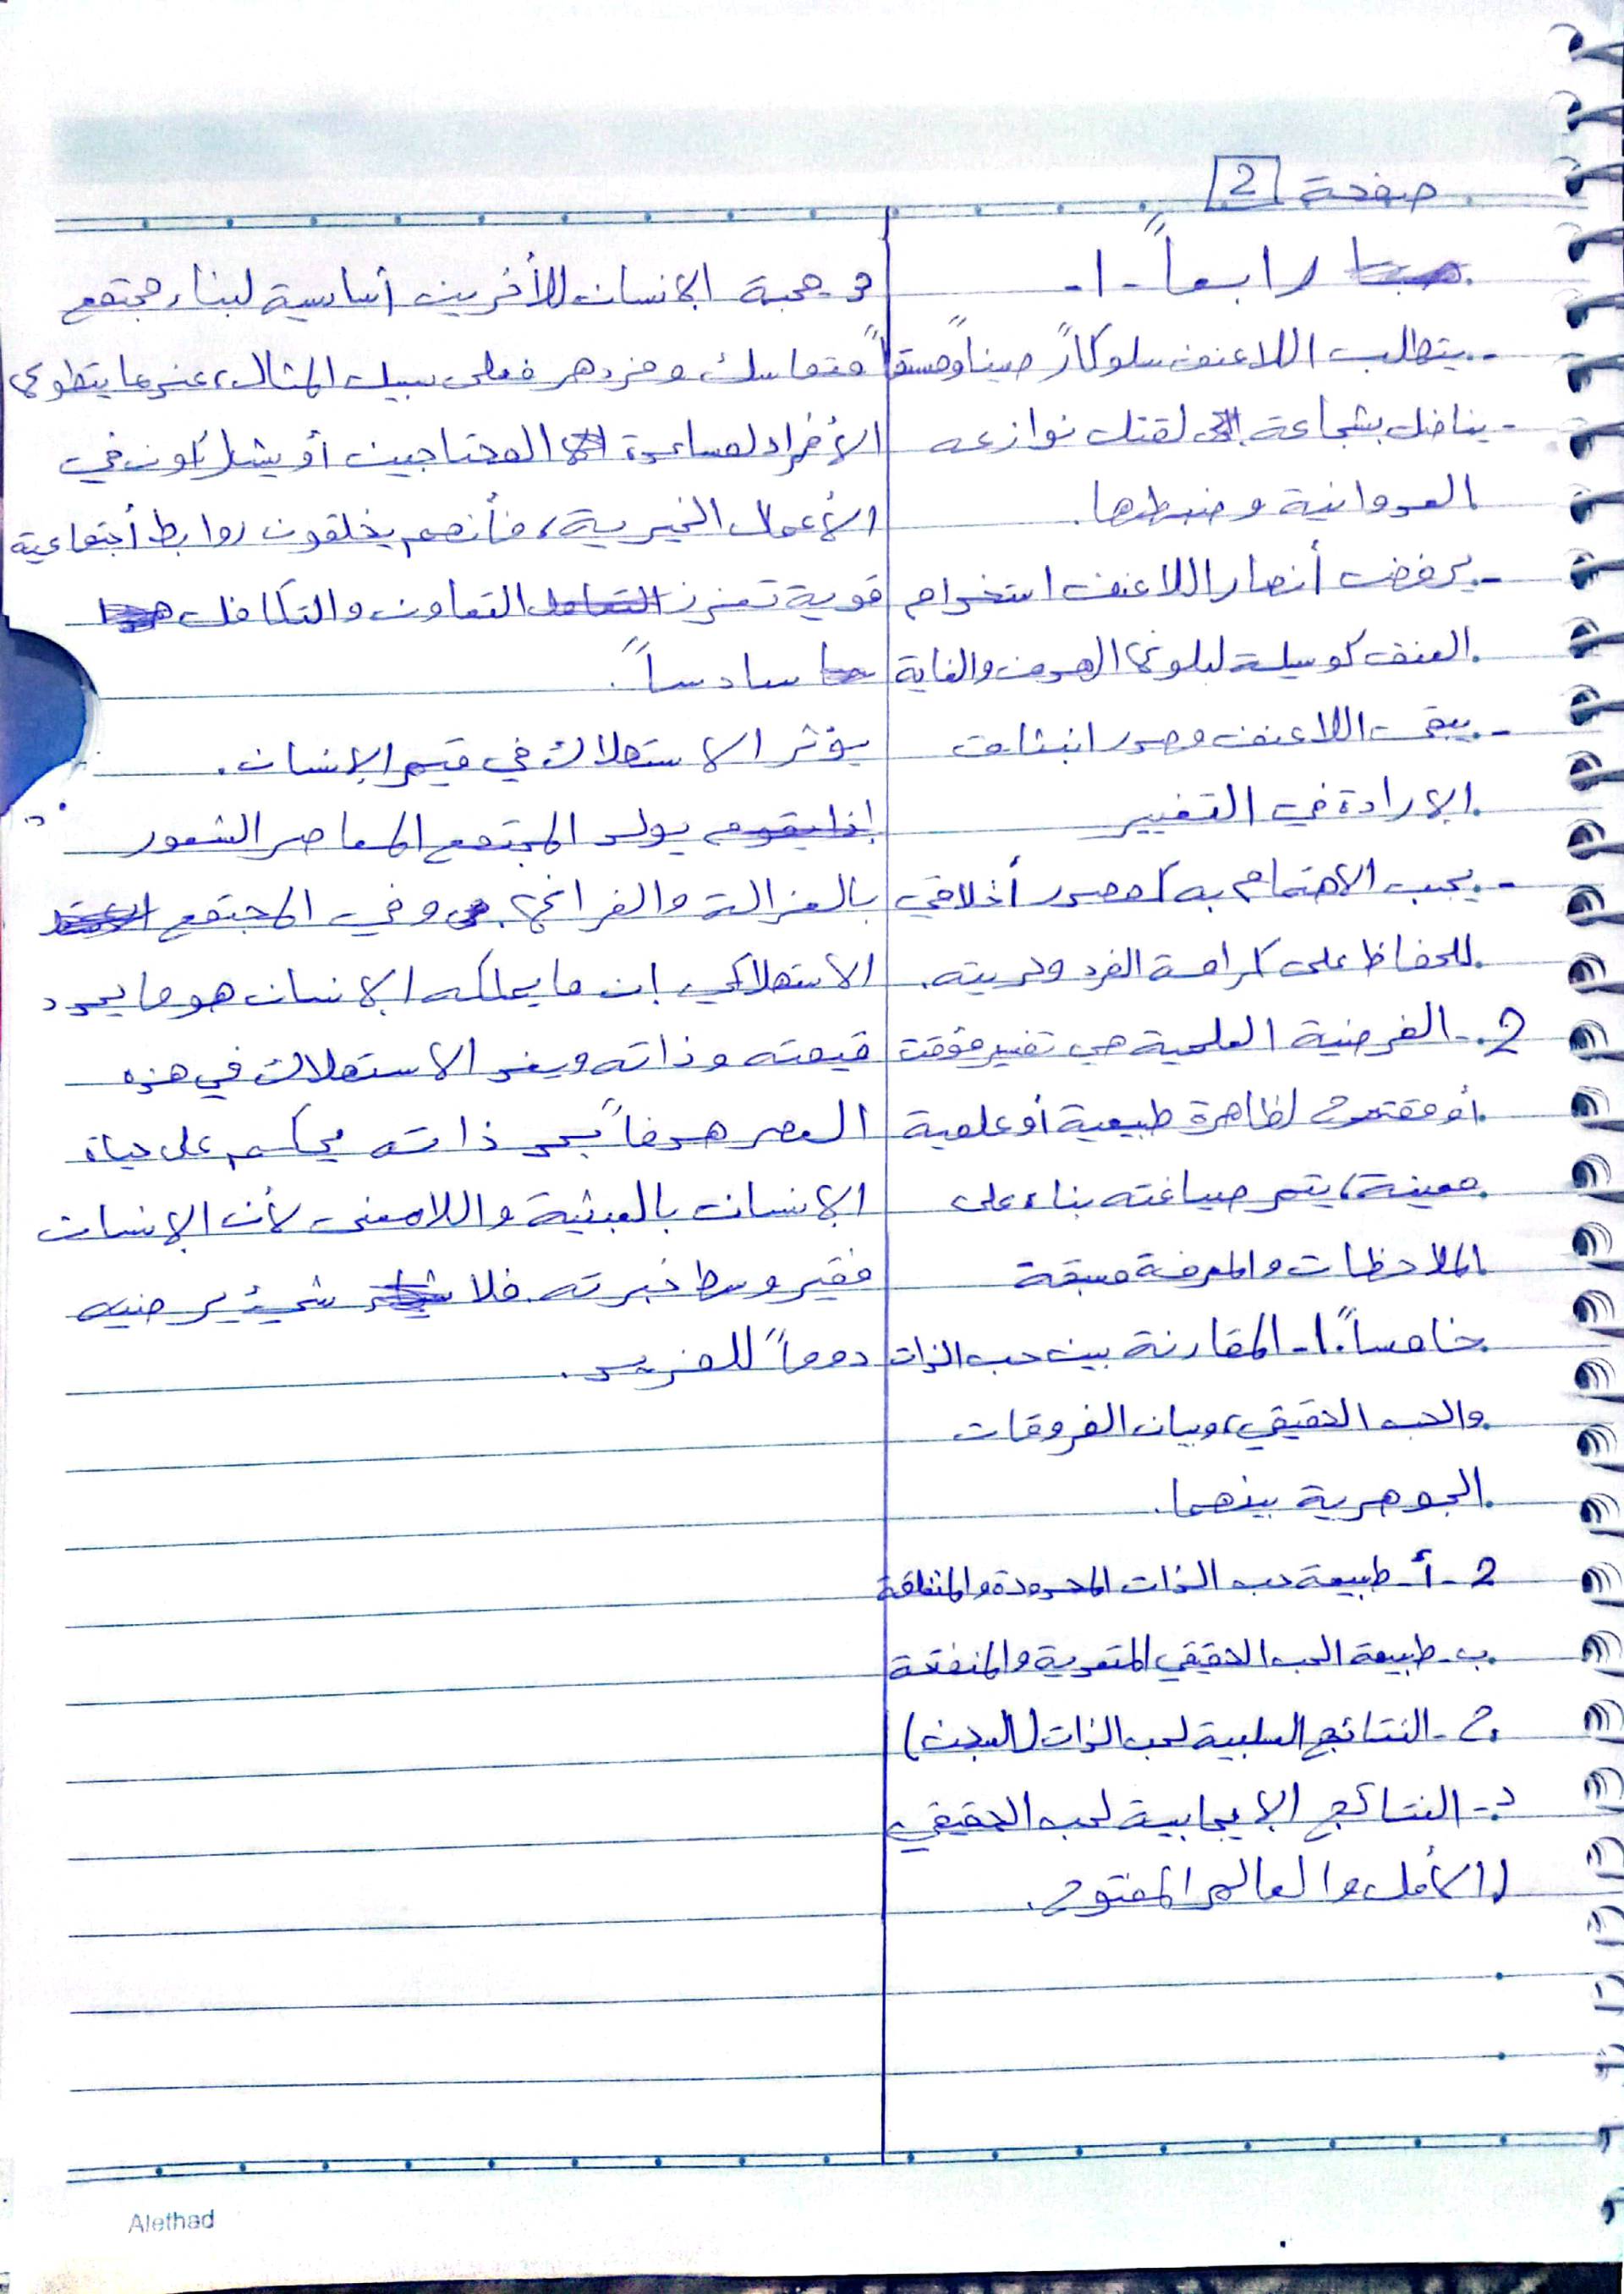 صفحة 2
رابعاً -1-
- يتطلب اللاعنف سلوكاً رصيناً ومستقراً
- يناضل بشجاعة لقتل نوازعه
العدوانية وضبطها.
- يرفض أنصار اللاعنف استخدام
العنف كوسيلة لبلوغ الهدف والغاية
- يبقى اللاعنف مصدر انبثاق
الإرادة في التغيير
- يجب الاهتمام به كمصدر أخلاقي
للحفاظ على كرامة الفرد وحريته.
2. - الفرضية العلمية هي تفسير مؤقت
أو مقترح لظاهرة طبيعية أو علمية
معينة، يتم صياغته بناء على
الملاحظات والمعرفة مسبقة
خامساً: 1- المقارنة بين حب الذات
والحب الحقيقي، وبيان الفروقات
الجوهرية بينهما.
2 - أ- طبيعة حب الذات المحدودة والمنغلقة
ب- طبيعة الحب الحقيقي المتعدية والمنفتحة
ج - النتائج السلبية لحب الذات (السجن)
د - النتائج الإيجابية لحب الحقيقي
(الأمل والعالم المفتوح.
3- محبة الانسان للأخرين أساسية لبناء مجتمع
متماسك ومزدهر فعلى سبيل المثال، عندما يتطوع
الأفراد لمساعدة المحتاجين أو يشاركون في
الأعمال الخيرية، فأنهم يخلقون روابط أجتماعية
قوية تعزز التعاون والتكافل
سادساً:
يؤثر الاستهلاك في قيم الإنسان.
يولد المجتمع المعاصر الشعور
بالعزالة والفراغ. وفي المجتمع
الاستهلاكي إن ما يملكه الإنسان هو ما يحدد
قيمته وذاته ويغدو الاستهلاك في هذه
العصر هدفاً بحد ذاته يحكم على حياة
الإنسان بالعبثية واللامعنى لأن الإنسان
فقير وسط خبرته فلا شيء يرضيه
دوماً للمزيد.
Alethad